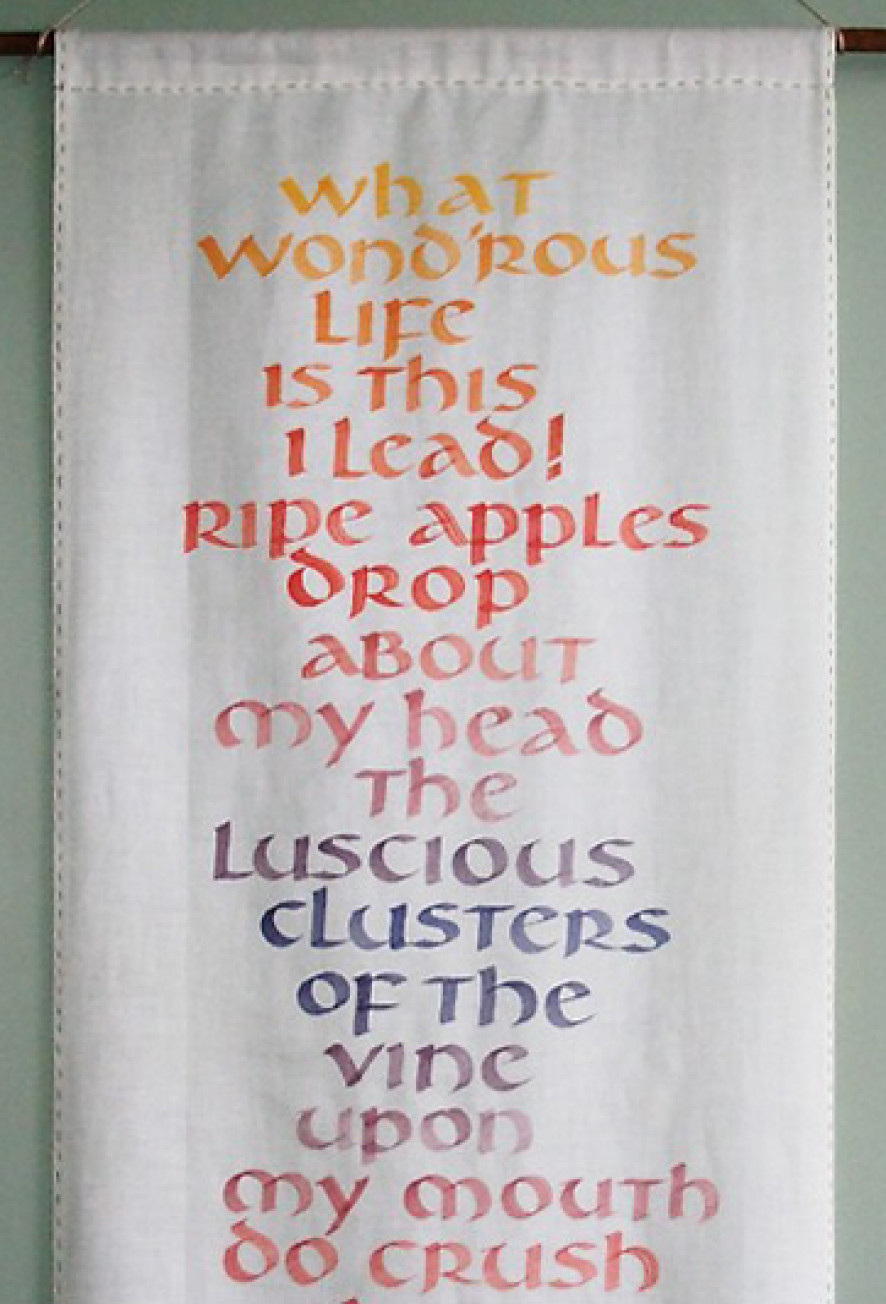 What
wond'rous
Life
is this
I lead!
Ripe apples
drop
about
my head
The
Luscious
clusters
of the
vine
upon
my mouth
do crush